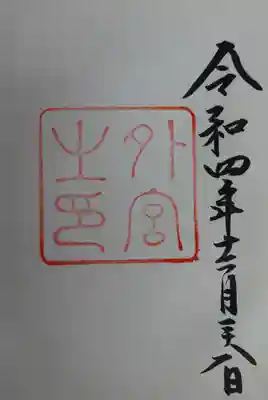 令和四年十一月二十八日
外宮
之印